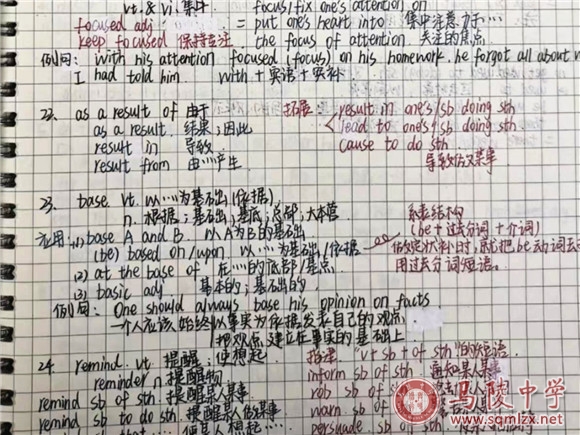 vt. & vi. 集中 focus/fix one's attention on
focused adj = put one's heart into 集中注意力于…
keep focused 保持专注. the focus of attention 关注的焦点
例句: with his attention focused (focus) on his homework. he forgot all about
I had told him. with + 宾语 + 宾补
22. as a result of 由于 拓展: result in one's/sb doing sth
as a result. 结果;因此 lead to one's/sb doing sth
result in 导致 cause to do sth
result from 由…产生 导致做某事
23. base vt. 以…为基础(依据) 系表结构
n. 根据;基础;基底;总部;大本营 (be + 过去分词 + 介词)
应用: (1) base A and B. 以A为B的基础 做定状补时,就把be动词去
(be) based on/upon 以…为基础/依据 用过去分词短语。
(2) at the base of 在…的底部/基点
(3) basic adj 基本的;基础的
例句: One should always base his opinion on facts.
一个人应该始终以事实为依据发表自己的观点.
把观点建立在事实的基础上
24. remind. vt 提醒;使想起 拓建: "vt sb + of sth"的短语
reminder n. 提醒物 inform sb of sth: 通知某人某事
remind sb of sth 提醒某人某事 rob sb of
remind sb to do sth 提醒某人做某事 warn sb of
that 使某人想起… persuade sb of sth
马陵中学
www.sqmlzx.net